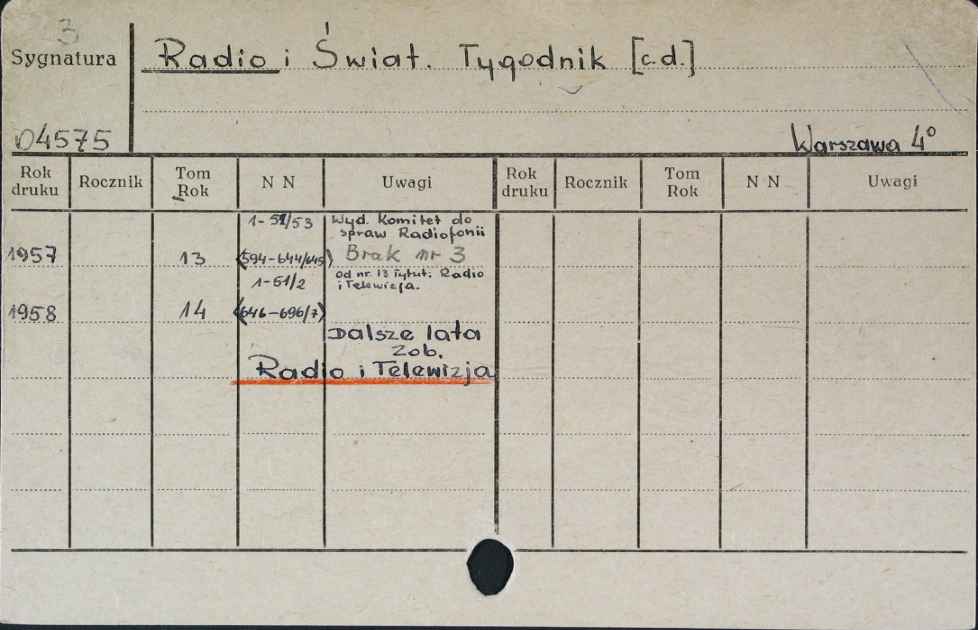 3
Sygnatura
Radio i Świat. Tygodnik [c.d.]
04575
Warszawa 4°
Rok druku Rocznik Tom Rok N N Uwagi Rok druku Rocznik Tom Rok N N Uwagi
1-52/53 Wyd. Komitet do
spraw Radiofonii
1957 13 (594-644/645) Brak nr 3
1-51/2 od nr. 13 tytuł: Radio
i Telewizja.
1958 14 (646-696/7)
Dalsze lata
zob.
Radio i Telewizja